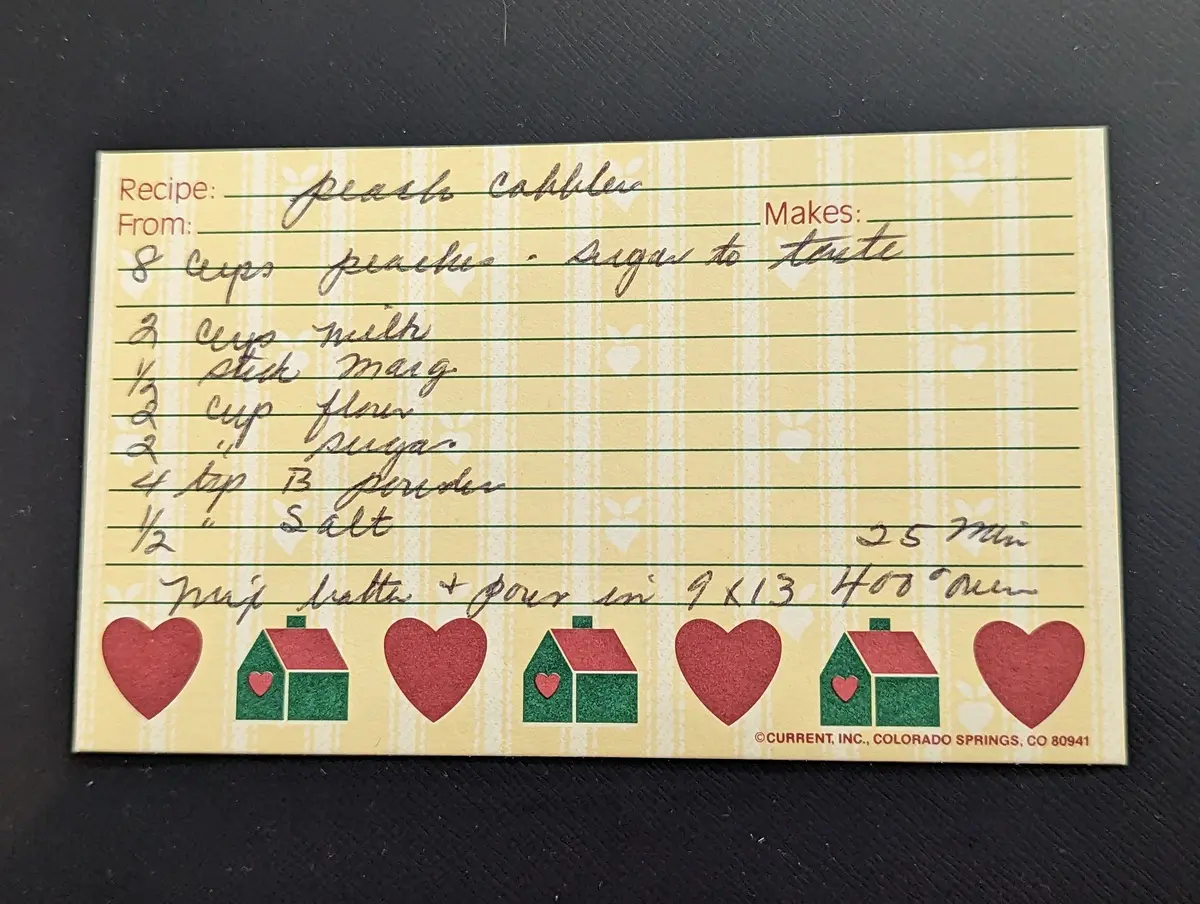 Recipe: peach cobbler
From: Makes:
8 cups peaches - sugar to taste
2 cups milk
1/2 stick marg
2 cup flour
2 " sugar
4 tsp B powder
1/2 " Salt
25 Min
Mix batter + pour in 9X13 400° oven
©CURRENT, INC., COLORADO SPRINGS, CO 80941